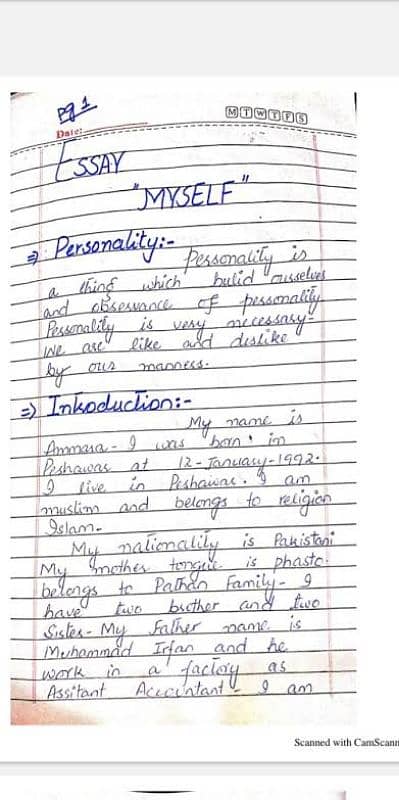 pg 1
M T W T F S
Date:
ESSAY
"MYSELF"
⇒ Personality:-
Personality is
a thing which bulid ourselves
and observance of personality.
Personality is very necessary.
We are like and dislike
by our manners.
⇒ Introduction:-
My name is
Ammara. I was born in
Peshawar at 12-January-1992.
I live in Peshawar. I am
muslim and belongs to religion
Islam.
My nationality is Pakistani
My mother tongue is phasto.
belongs to Pathan Family. I
have two brother and two
Sister. My Father name is
Mohammad Irfan and he
work in a factory as
Assitant Accountant. I am
Scanned with CamScann